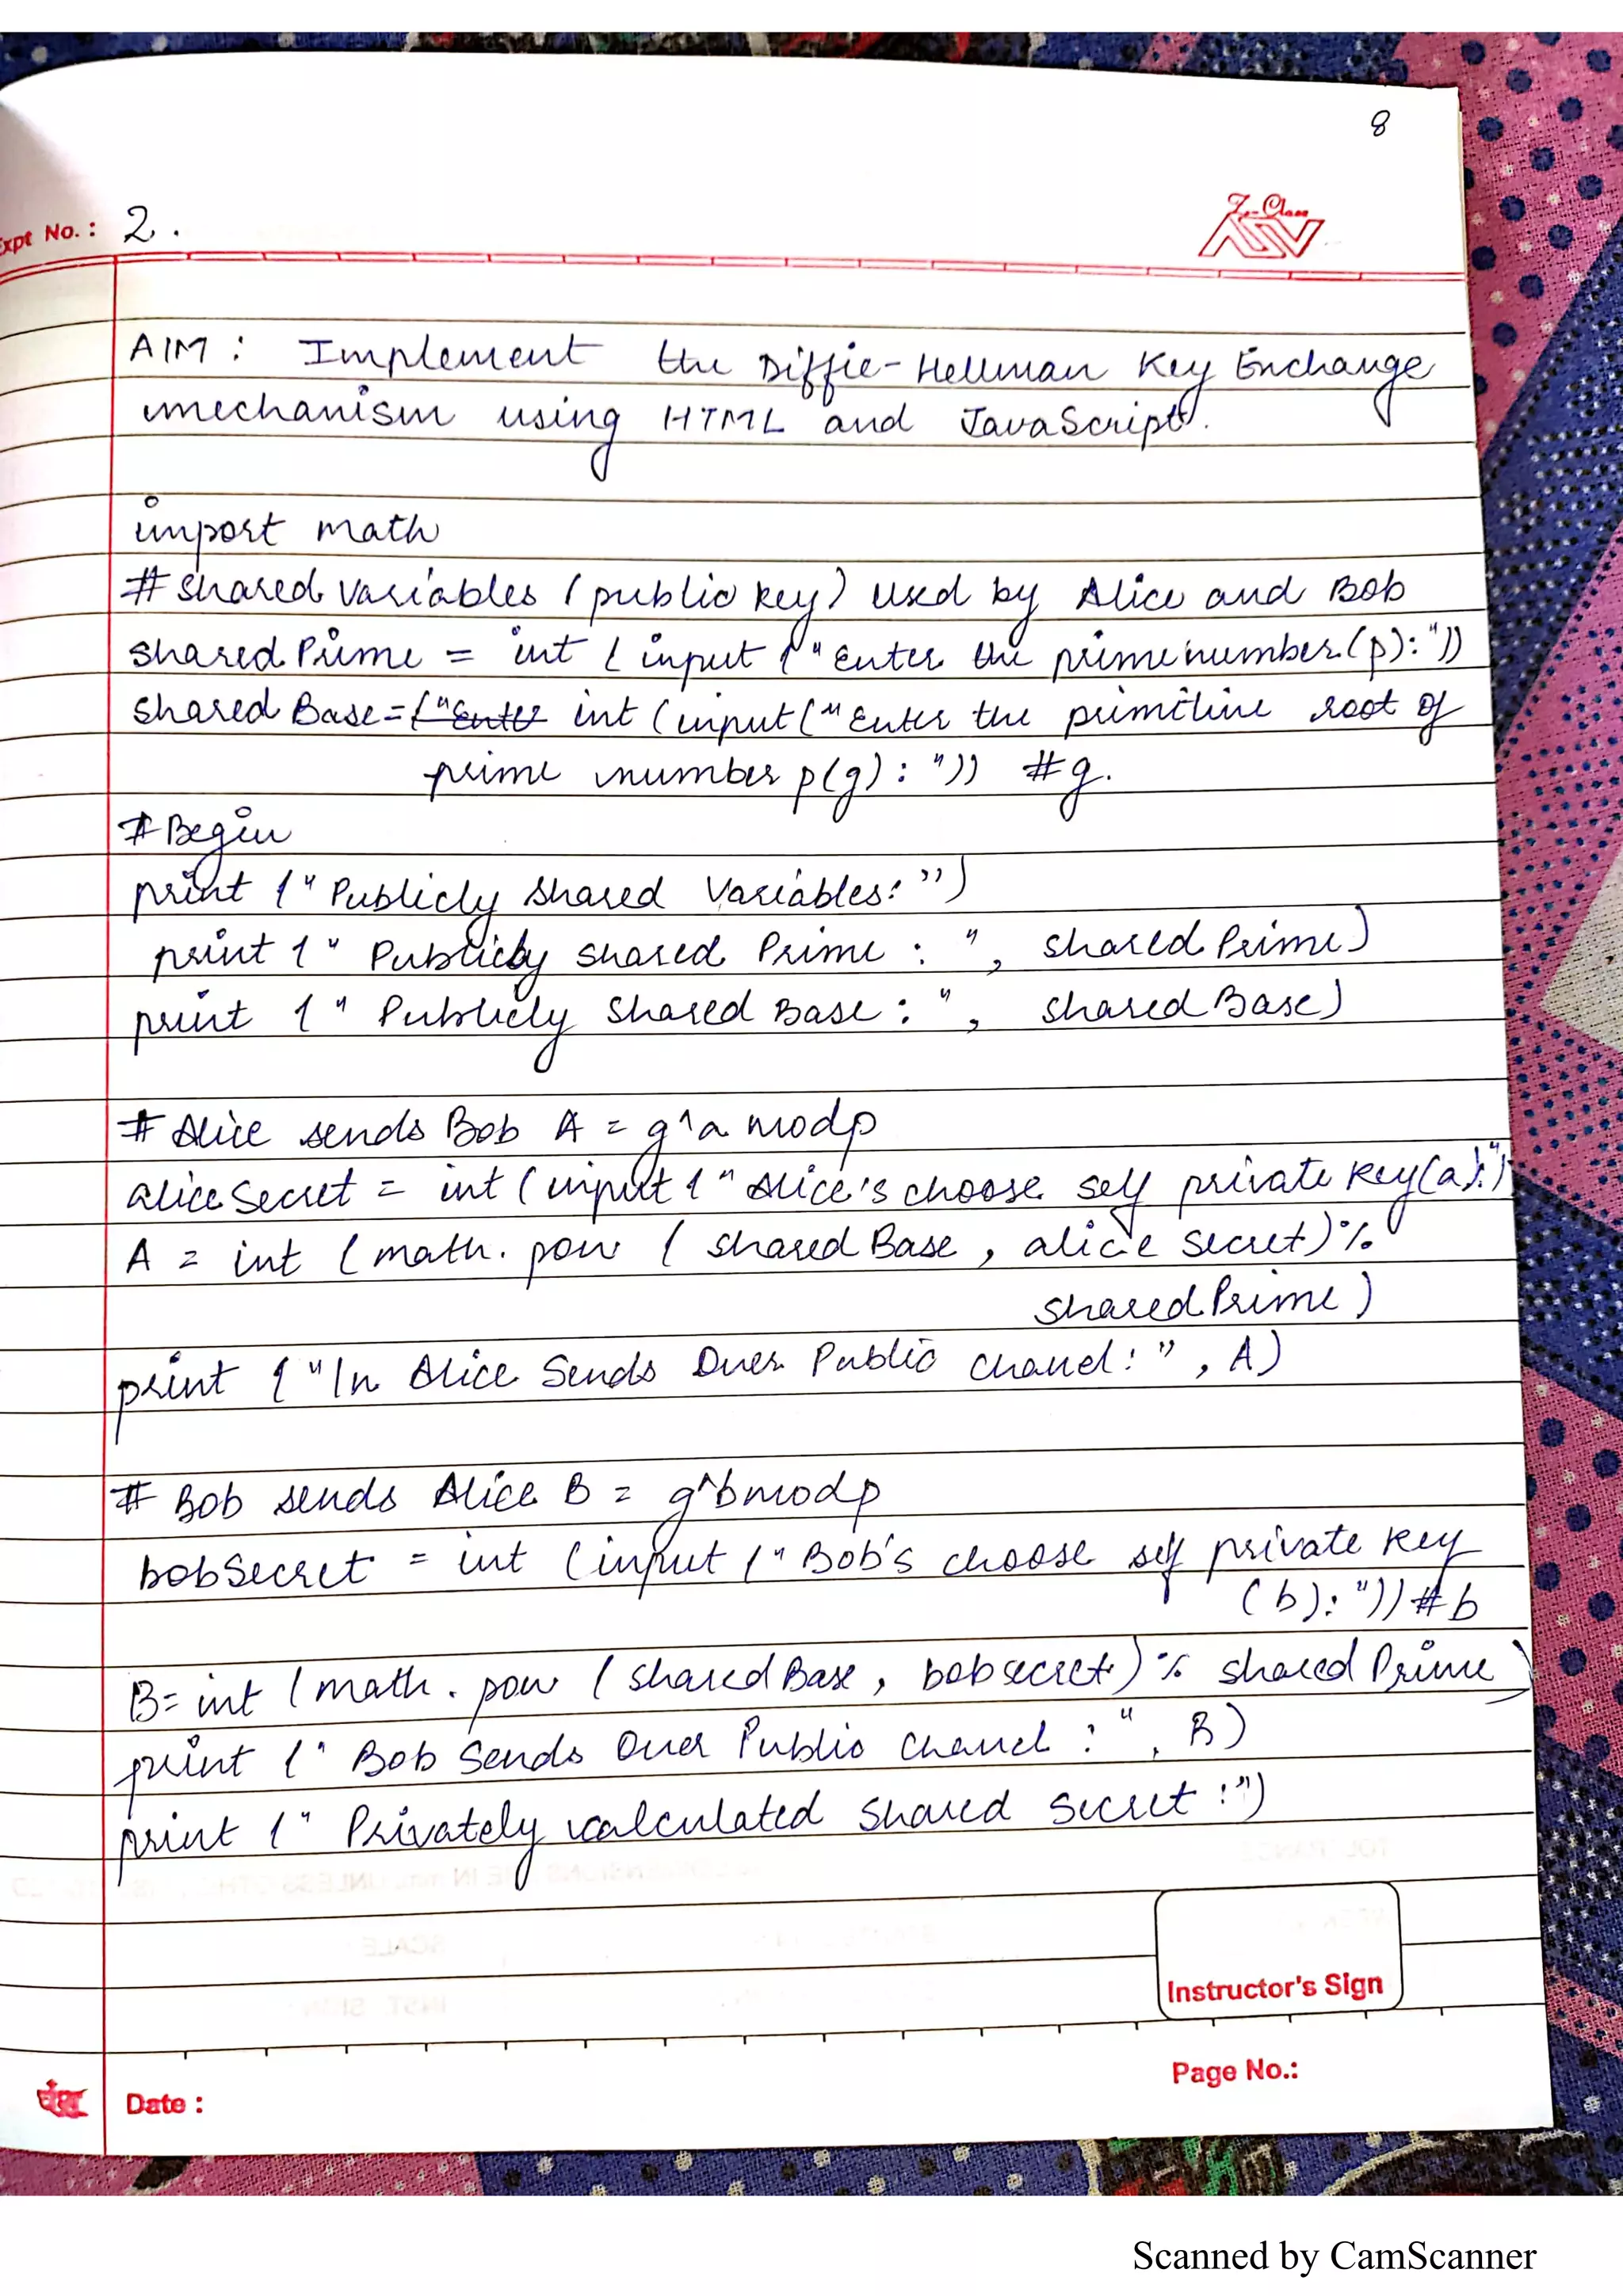 8
Expt No. : 2.
AIM : Implement the Diffie-Hellman Key Exchange
mechanism using HTML and JavaScript.
import math
# shared variables (public key) used by Alice and Bob
shared Prime = int (input ("Enter the prime number (p): "))
shared Base = ("Enter int (input ("Enter the primitive root of
prime number p(g) : ")) #g.
# Begin
print (" Publicly shared Variables: ")
print (" Publicly shared Prime : ", shared Prime)
print (" Publicly Shared Base : ", shared Base)
# Alice sends Bob A = g^a modp
alice Secret = int (input (" Alice's choose self private key(a):")
A = int (math. pow ( shared Base , alice secret) %
shared Prime )
print ("\n Alice Sends Over Public Chanel: " , A)
# Bob sends Alice B = g^bmodp
bobSecret = int (input (" Bob's choose self private key
(b): ")) #b
B= int (math. pow (shared Base , bobsecret) % shared Prime )
print (" Bob Sends Over Public Chanel : " , B)
print (" Privately calculated Shared Secret :")
Instructor's Sign
Page No.:
Date :
Scanned by CamScanner